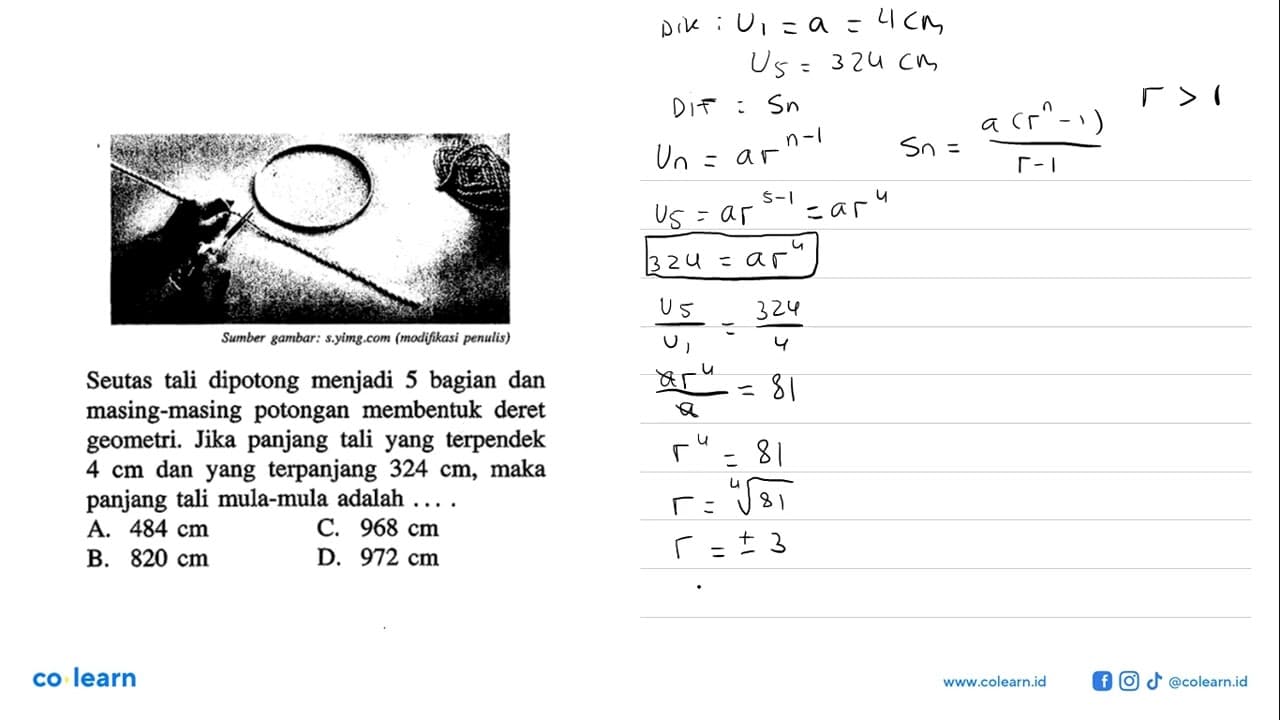 Sumber gambar: s.yimg.com (modifikasi penulis)
Seutas tali dipotong menjadi 5 bagian dan
masing-masing potongan membentuk deret
geometri. Jika panjang tali yang terpendek
4 cm dan yang terpanjang 324 cm, maka
panjang tali mula-mula adalah . . . .
A. 484 cm C. 968 cm
B. 820 cm D. 972 cm
Dik : U₁ = a = 4 cm
U₅ = 324 cm
Dit : Sn
Un = ar^(n-1)
Sn = a(r^n - 1) / (r-1)
r > 1
U₅ = ar^(5-1) = ar⁴
324 = ar⁴
U₅/U₁ = 324/4
ar⁴/a = 81
r⁴ = 81
r = ⁴√81
r = ± 3
co learn
www.colearn.id
@colearn.id